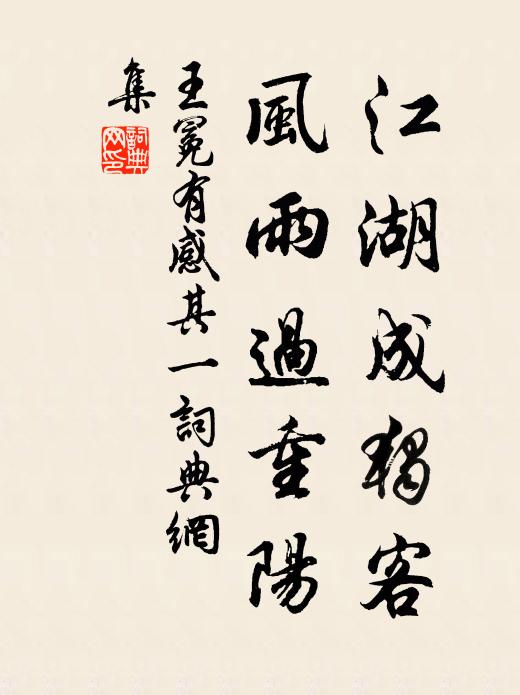 江湖成獨客
風雨過重陽
王冕有感其一詞典網
集
詞典
網印